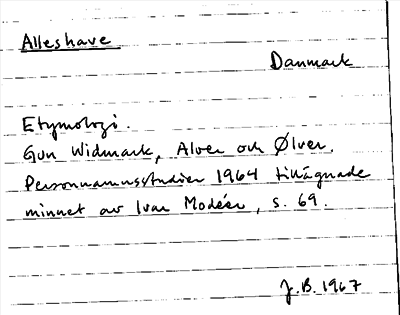 Alleshave
Danmark
Etymologi.
Gun Widmark, Alver och Ølver.
Personnamnsstudier 1964 tillägnade
minnet av Ivar Modéer, s. 69.
J.B. 1967